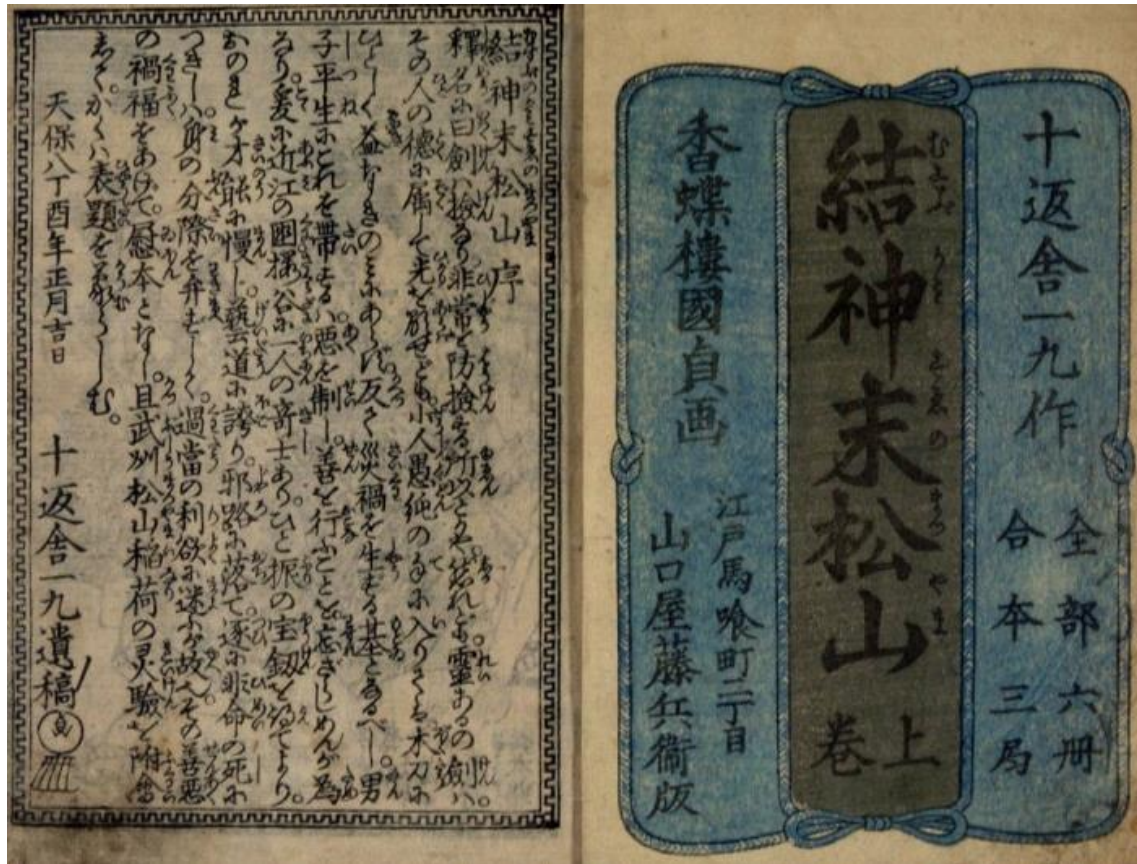 十返舎一九作
全部六冊
合本三局
結神末松山
上
巻
香蝶樓國貞画
江戸馬喰町二丁目
山口屋藤兵衞版
結神末松山序
釋名に曰劍は撿なり非常を防撿する所以とぞ。然れば霊あるの劍は。
その人の徳に属して光を顕せども小人愚鈍の手に入りては木刀に
ひとしく益なきのみにあらず。反て災禍を生ずる基となるべし。男
子平生にこれを帯するは悪を制し。善を行ふことを忘ざらしめんが為
なり。爰に近江の国 谷に一人の奇士あり。ひと振の宝釼を得てより。
おのれが才能に慢し。藝道に誇り。邪路に落て。遂に非命の死に
つきしは身の分際を弁ずして。過當の利欲に迷ふが故に。その善悪
の禍福をあげて。 本となし。且武州松山稲荷の灵驗を附會
して。かくは表題を蒙らしむ。
天保八丁酉年正月吉日
十返舎一九遺稿